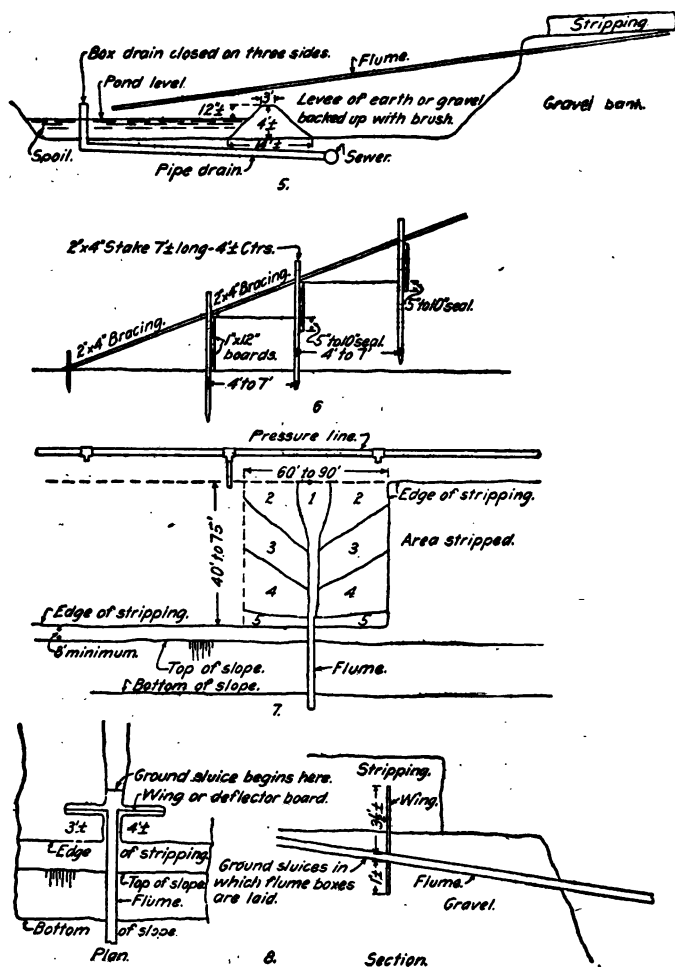 Stripping.
Box drain closed on three sides.
Flume.
Pond level.
3'
12"±
Levee of earth or gravel
backed up with brush.
Gravel bank.
4'±
Spoil.
Sewer.
Pipe drain.
5.
2"x4" Stake 7'± long-4'± Ctrs.
2"x4" Bracing.
2"x4" Bracing.
5"to10"seal.
1"x12"
boards.
5"to10"seal.
4' to 7'
4' to 7'
6
Pressure line.
60' to 90'
2 1 2
Edge of stripping.
40' to 75'
3 3
Area stripped.
4 4
Edge of stripping.
5 5
8' minimum.
Top of slope.
Flume.
Bottom of slope.
7.
Ground sluice begins here.
Wing or deflector board.
3'± 4'±
Edge of stripping.
Top of slope.
Flume.
Bottom of slope.
Plan.
8.
Stripping.
Wing.
3½'±
1'±
Ground sluices in
which flume boxes
are laid.
Flume.
Gravel.
Section.